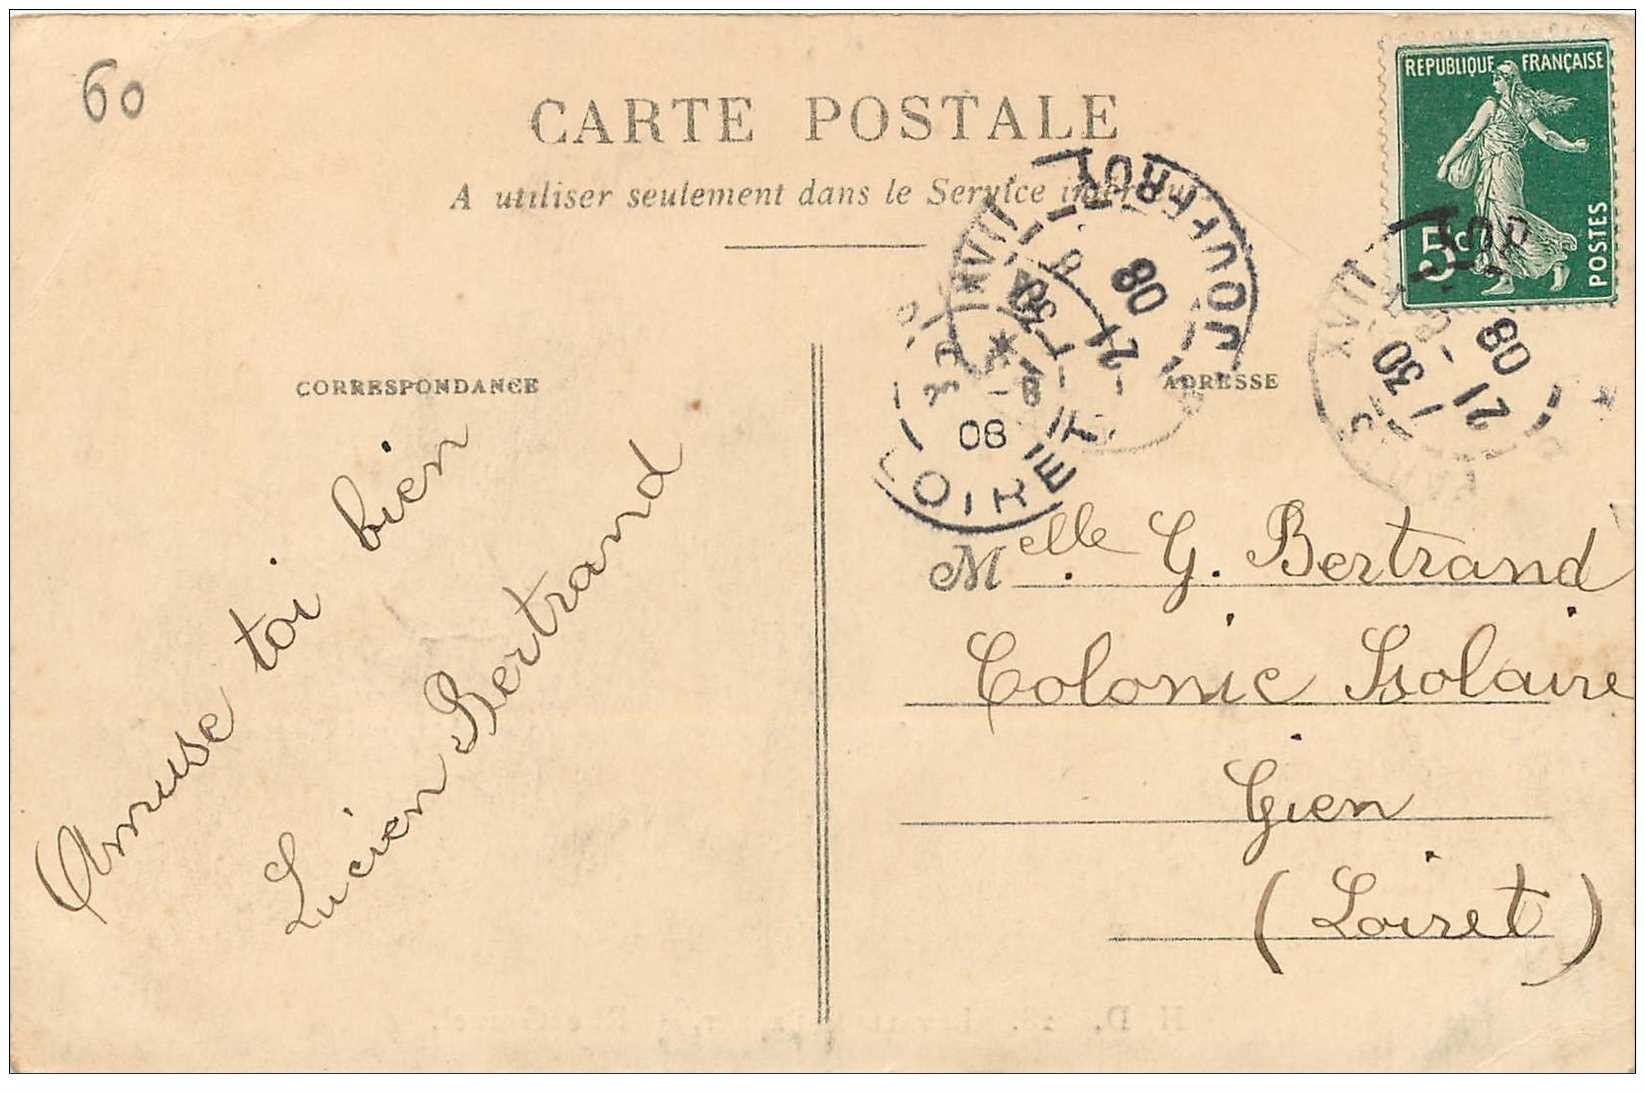 60
CARTE POSTALE
A utiliser seulement dans le Service
REPUBLIQUE FRANÇAISE
5c
POSTES
CORRESPONDANCE
ADRESSE
Amuse toi bien
Lucien Bertrand
JOUFFROY
XVII
7 30
21
08
LOIRET
08
XVII
30
21
08
Melle. G. Bertrand
Colonie Scolaire
Gien
(Loiret)